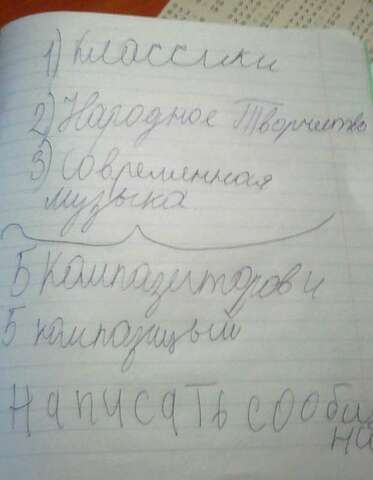 1) Классики
2) Народное Творчество
3) Современная
музыка
5 Композиторов и
5 композицый
Написать сооб
на